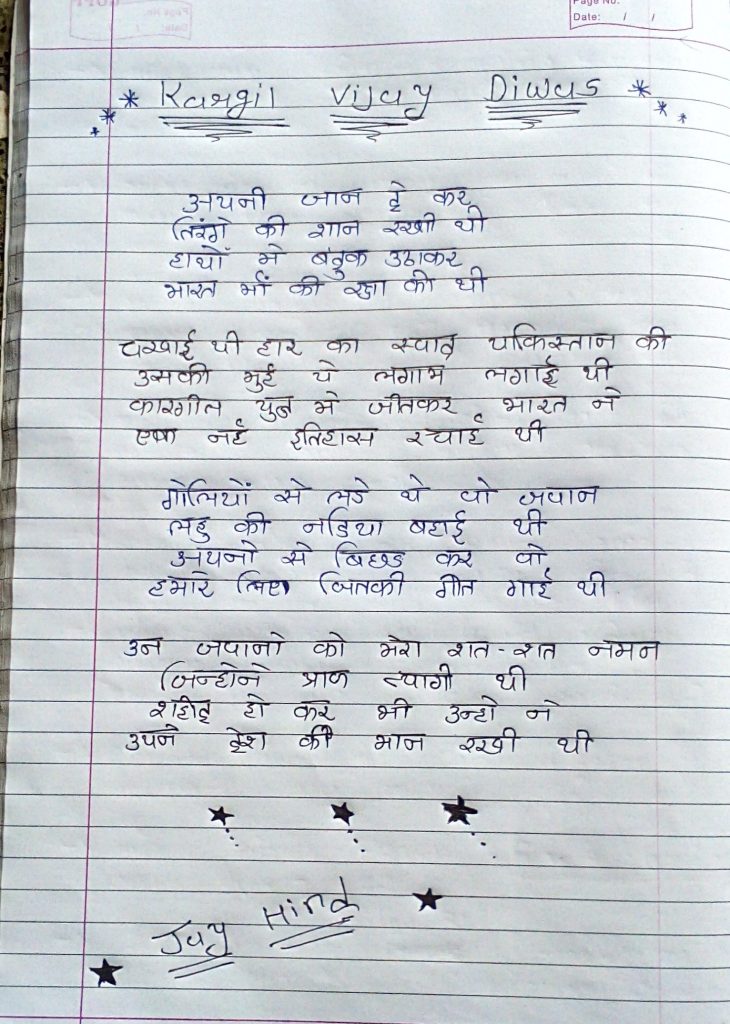 Page No.
Date: / /
Kargil Vijay Diwas
अपनी जान दे कर
तिरंगे की शान रखी थी
हाथों मे बंदुक उठाकर
भारत माँ की रक्षा की थी
चखाई थी हार का स्वाद पाकिस्तान की
उसकी मुहँ पे लगाम लगाई थी
कारगील युद्ध मे जीतकर भारत ने
एक नई इतिहास रचाई थी
गोलियों से लडे थे वो जवान
लहु की नदिया बहाई थी
अपनो से बिछड कर वो
हमारे लिए जितकी गीत गाई थी
उन जवानो को मेरा शत-शत नमन
जिन्होने प्राण त्यागी थी
शहीद हो कर भी उन्हो ने
उपने देश की मान रखी थी
Jay Hind